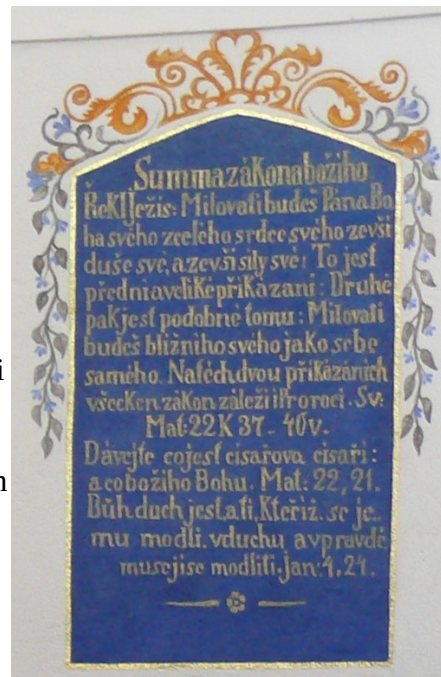 Summa zákona božího
Řekl Ježis: Milovati budeš Pána Bo
ha svého zcelého srdce svého zevší
duše své, a zevší síly své: To jest
přední a veliké přikázaní: Druhé
pak jest podobné tomu: Milovati
budeš bližního svého jako sebe
samého. Na těch dvou přikázáních
všecken zákon záleží i Proroci. Sv:
Mat: 22 K 37 - 40 v.
Dávejte co jest cisařova cisaři:
a co božího Bohu. Mat: 22, 21.
Bůh duch jest a ti, Kteříž. se je
mu modlí. v duchu a v pravdě
musejí se modliti. Jan: 4, 24.
i
n